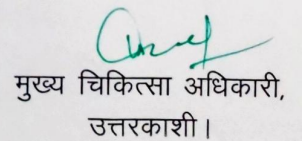 मुख्य चिकित्सा अधिकारी,
उत्तरकाशी।